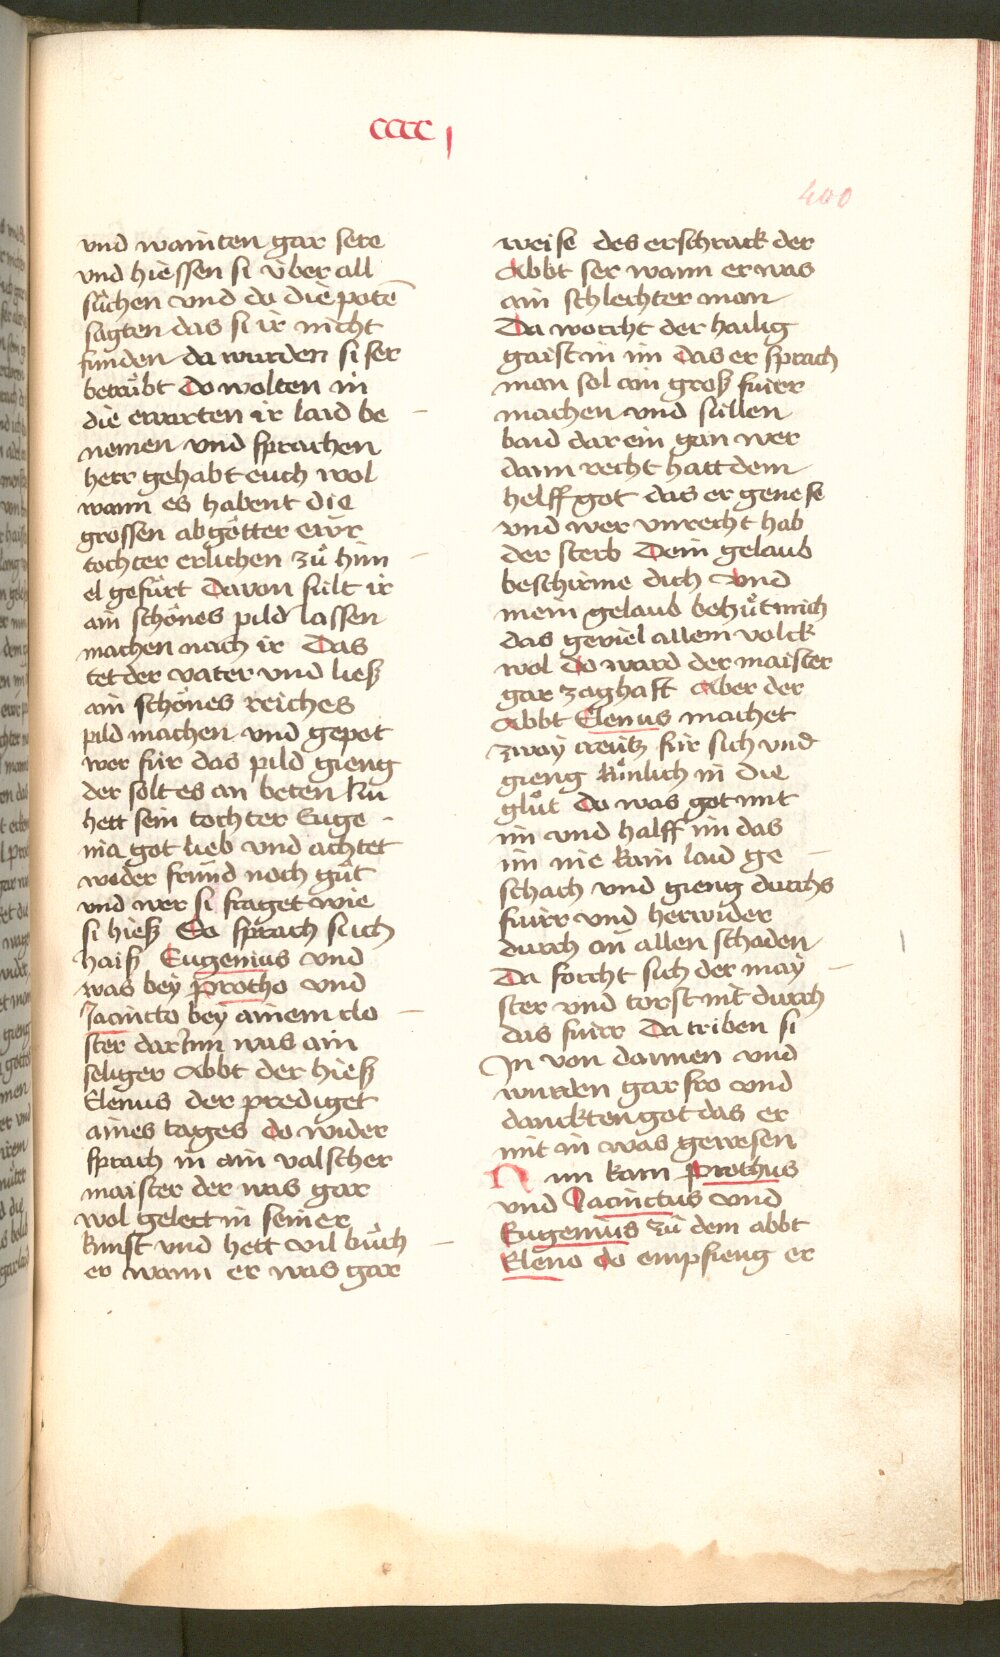 cccc j
400
vnd wainten gar sere
vnd hiessen si v̈ber all
sůchen vnd da die potē
sagten das si ir nicht
funden da wurden si ser
betrůbt do wolten in
die ewarten ir laid be
nemen vnd sprachen
herr gehabt euch wol
wann es habent die
grossen abgötter ewr
tochter erlichen zů him
el gefůrt Davon sült ir
ain schönes pild lassen
machen nach ir Das
tet der vater vnd ließ
ain schönes reiches
pild machen vnd gepot
wer für das pild gieng
der solt es an beten Nu
hett sein tochter Euge
nia got lieb vnd achtet
weder fründ noch gůt
vnd wer si fraget wie
si hieß So sprach si ich
haiß Eugenius vnd
was bey Protho vnd
Jacincto bey ainem clo
ster dar Inn was ain
seliger Abbt der hieß
Elenus der prediget
aines tages do wider
sprach in ain valscher
maister der was gar
wol gelert in seiner
kunst vnd hett vil bůch
er wann er was gar
weise des erschrack der
Abbt ser wann er was
ain schlechter man
Da worcht der hailig
gaist in im das er sprach
man sol ain groß fuirr
machen vnd süllen
baid dar ein gan wer
dann recht hatt dem
helff got das er genese
vnd wer vnrecht hab
der sterb Dein gelaub
beschirme dich vnd
mein gelaub behůt mich
das geviel allem volck
wol do ward der maister
gar zaghaft Aber der
Abbt Elenus machet
zway creutz für sich vnd
gieng künlich in die
glůt do was got mit
im vnd halff im das
im nie kain laid ge
schach vnd gieng durchs
fuirr vnd herwider
durch on allen schaden
Da forcht sich der may
ster vnd torst nit durch
das fuirr Da triben si
In von dannen vnd
wurden gar fro vnd
danckten got das er
mit in was gewesen
Nun kam Prothus
vnd Jacinctus vnd
Eugenius zů dem abbt
Eleno do empfieng er